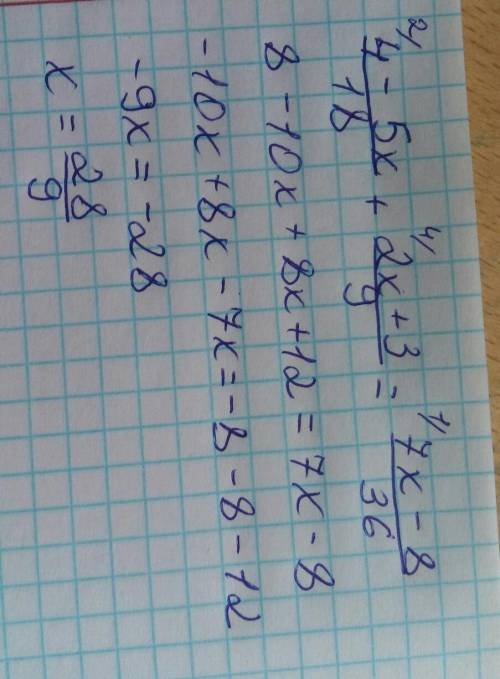 ²⁄ (4 - 5x)/18 + ⁴⁄ (2x + 3)/9 = ¹⁄ (7x - 8)/36
8 - 10x + 8x + 12 = 7x - 8
-10x + 8x - 7x = -8 - 8 - 12
-9x = -28
x = 28/9